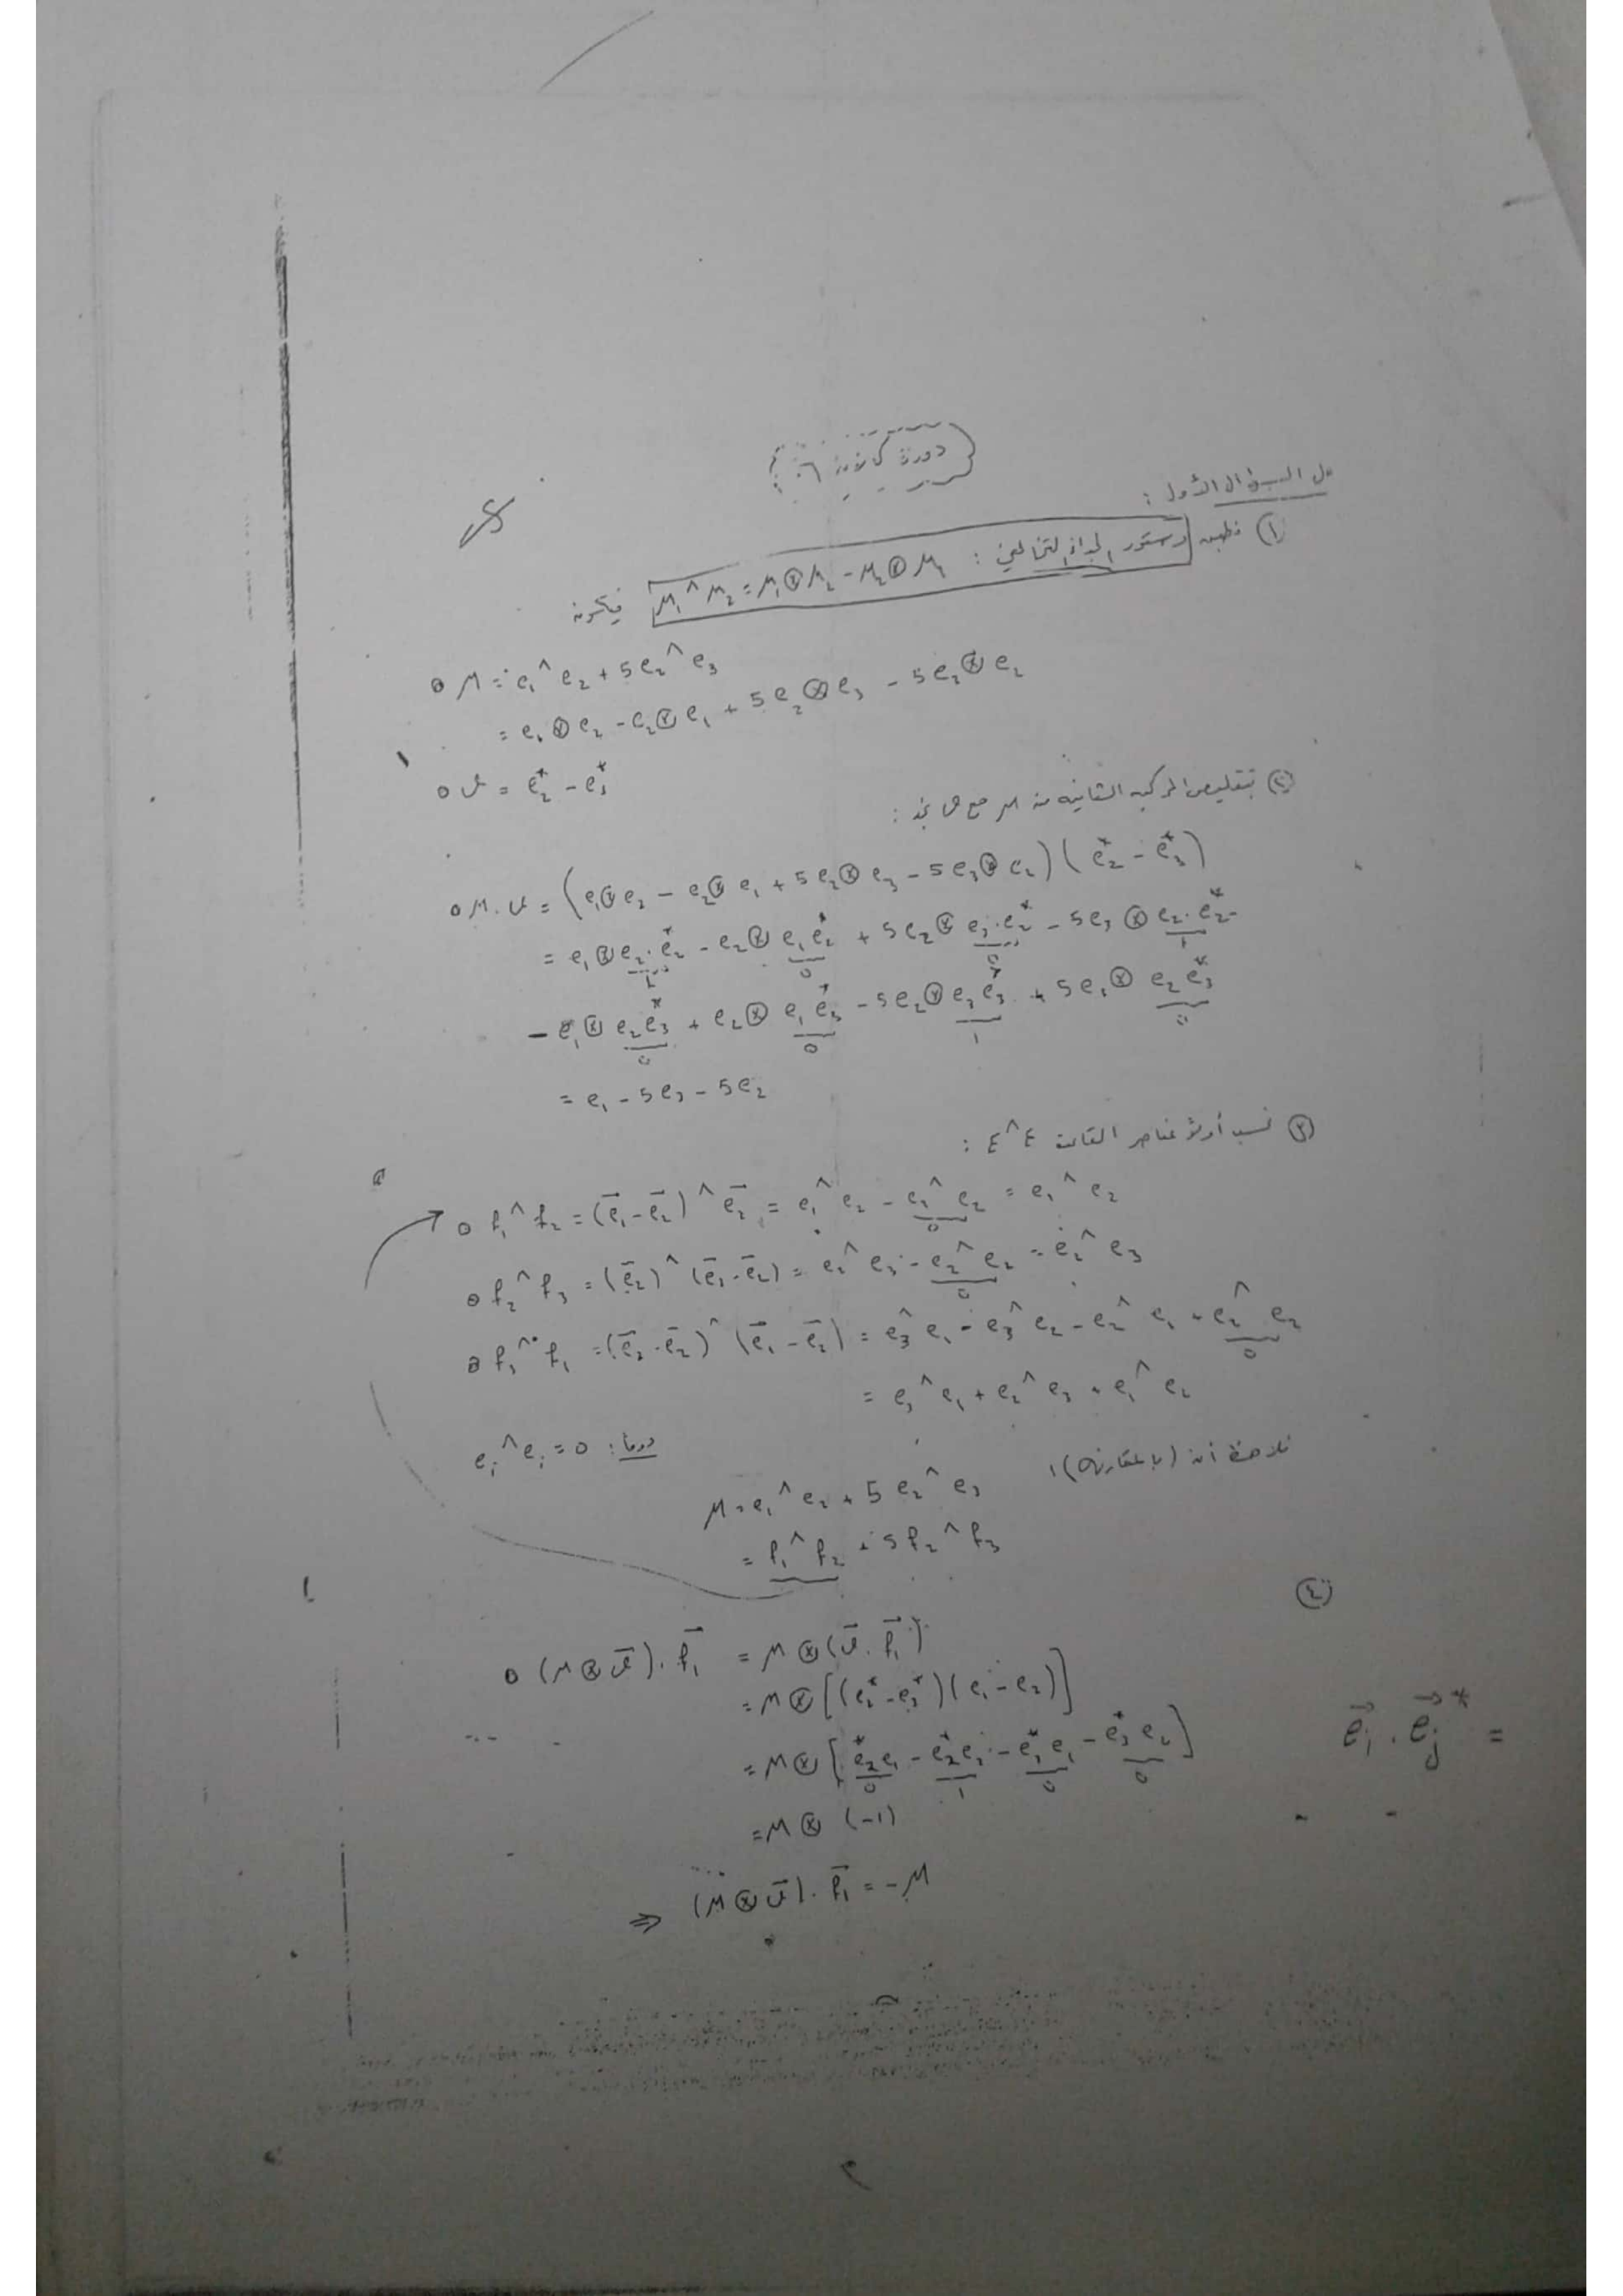 دورة كانون ٠٦
حل السؤال الأول :
① نطبق دستور الجداء التخالفي : μ₁ ^ μ₂ = μ₁ ⊗ μ₂ - μ₂ ⊗ μ₁ فيكون
o μ = e₁ ^ e₂ + 5 e₂ ^ e₃
= e₁ ⊗ e₂ - e₂ ⊗ e₁ + 5 e₂ ⊗ e₃ - 5 e₃ ⊗ e₂
o υ = e₂* - e₃*
② بتقليص المركبة الثانية من μ مع υ نجد :
o μ . υ = (e₁ ⊗ e₂ - e₂ ⊗ e₁ + 5 e₂ ⊗ e₃ - 5 e₃ ⊗ e₂) (e₂* - e₃*)
= e₁ ⊗ e₂ . e₂* - e₂ ⊗ e₁ e₂* + 5 e₂ ⊗ e₃ . e₂* - 5 e₃ ⊗ e₂ . e₂* -
1 0 0 1
- e₁ ⊗ e₂ e₃* + e₂ ⊗ e₁ e₃* - 5 e₂ ⊗ e₃ e₃* + 5 e₃ ⊗ e₂ e₃*
0 0 1 0
= e₁ - 5 e₃ - 5 e₂
③ نحسب أولاً عناصر القاعدة ε ^ ε :
o f₁ ^ f₂ = (e₁ - e₂) ^ e₂ = e₁ ^ e₂ - e₂ ^ e₂ = e₁ ^ e₂
0
o f₂ ^ f₃ = (e₂) ^ (e₃ - e₂) = e₂ ^ e₃ - e₂ ^ e₂ = e₂ ^ e₃
0
o f₃ ^ f₁ = (e₃ - e₂) ^ (e₁ - e₂) = e₃ ^ e₁ - e₃ ^ e₂ - e₂ ^ e₁ + e₂ ^ e₂
0
= e₃ ^ e₁ + e₂ ^ e₃ + e₁ ^ e₂
eᵢ ^ eᵢ = 0 : دوماً
نلاحظ أن (بالمقارنة) :
μ = e₁ ^ e₂ + 5 e₂ ^ e₃
= f₁ ^ f₂ + 5 f₂ ^ f₃
④
o (μ ⊗ υ) . f₁ = μ ⊗ (υ . f₁)
= μ ⊗ [(e₂* - e₃*) (e₁ - e₂)]
= μ ⊗ [e₂* e₁ - e₂* e₂ - e₃* e₁ - e₃* e₂]
0 1 0 0
eᵢ . eⱼ* =
= μ ⊗ (-1)
⇒ (μ ⊗ υ) . f₁ = - μ